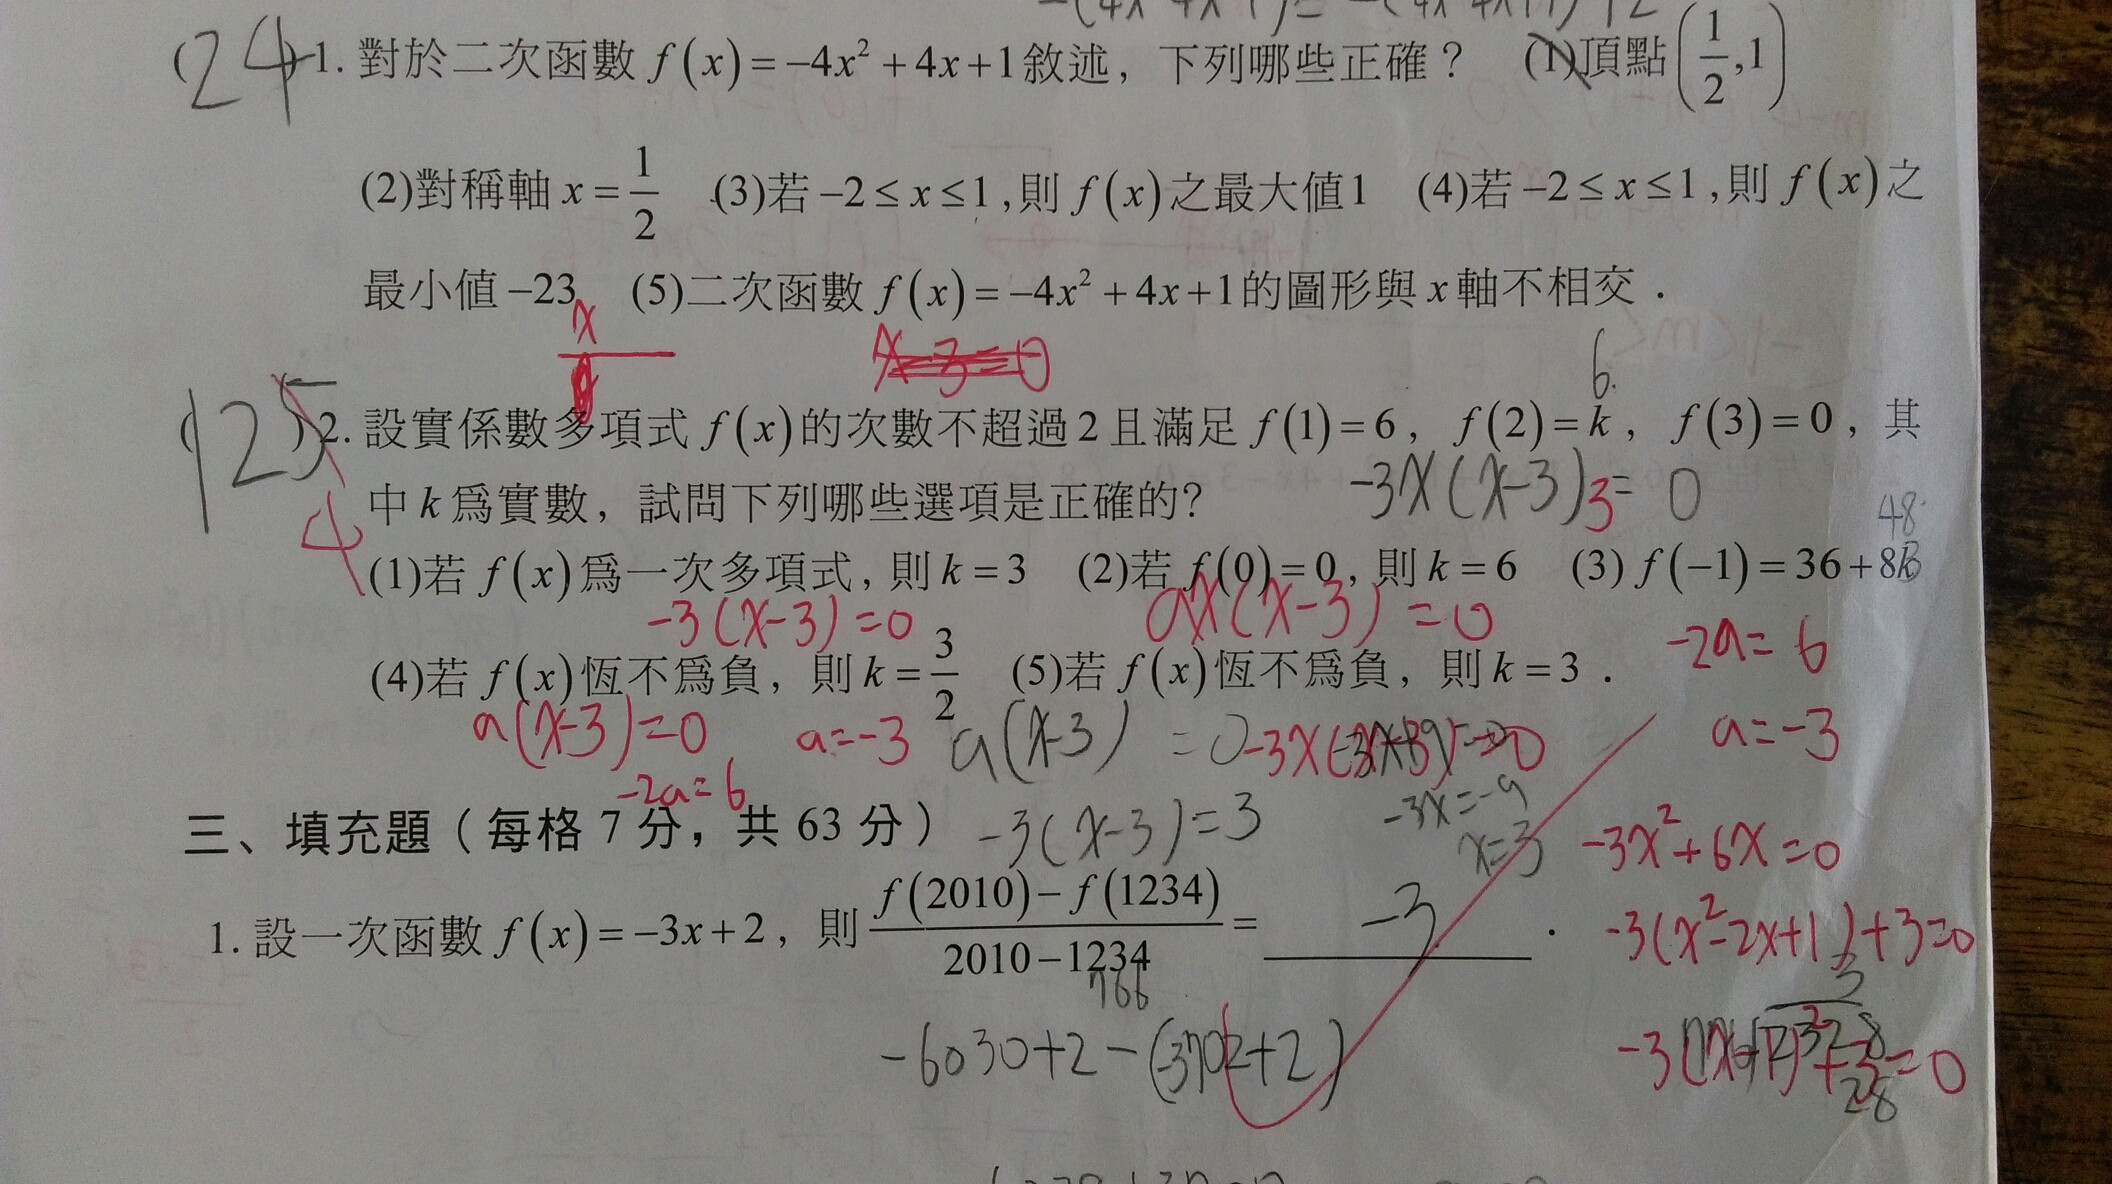 (24)1. 對於二次函數 f(x)=-4x²+4x+1敘述，下列哪些正確？ (1)頂點(1/2,1)
(2)對稱軸 x=1/2 (3)若 -2≤x≤1,則 f(x)之最大值1 (4)若 -2≤x≤1,則 f(x)之
最小值-23 (5)二次函數 f(x)=-4x²+4x+1的圖形與 x 軸不相交．
x
x-3=0
6
(125)2. 設實係數多項式 f(x)的次數不超過2且滿足 f(1)=6，f(2)=k，f(3)=0，其
中 k 爲實數，試問下列哪些選項是正確的?
-3x(x-3)3=0
4
48
(1)若 f(x)爲一次多項式，則 k=3 (2)若 f(0)=0，則 k=6 (3) f(-1)=36+8k
-3(x-3)=0
ax(x-3)=0
-2a=6
(4)若 f(x)恆不爲負，則 k=3/2 (5)若 f(x)恆不爲負，則 k=3．
a(x-3)=0 a=-3 a(x-3)=0
a=-3
-2a=6
-3x=-9
x=3
三、填充題（每格 7 分，共 63 分）
-3(x-3)=3
-3x²+6x=0
1. 設一次函數 f(x)=-3x+2，則 (f(2010)-f(1234))/(2010-1234)= -3 ．
-3(x²-2x+1)+3=0
766
-6030+2-(-3702+2)